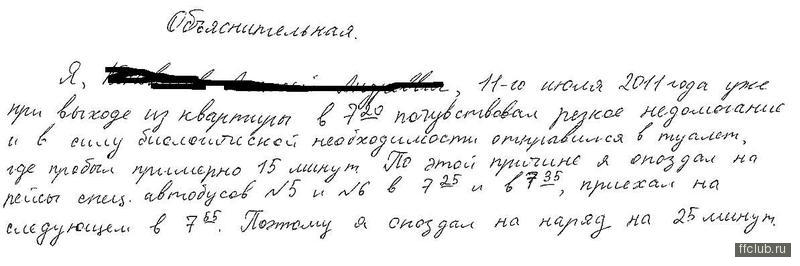 Объяснительная.
Я, , 11-го июля 2011 года уже
при выходе из квартиры в 7 20 почувствовал резкое недомогание
и в силу биологической необходимости отправился в туалет,
где пробыл примерно 15 минут По этой причине я опоздал на
рейсы спец. автобусов №5 и №6 в 7 25 и в 7 35, приехал на
следующем в 7 55. Поэтому я опоздал на наряд на 25 минут.
ffclub.ru